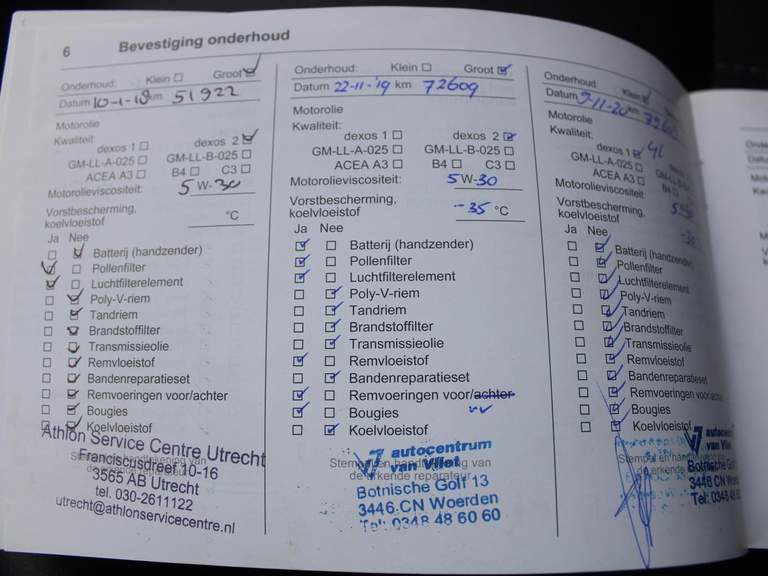 6 Bevestiging onderhoud
Onderhoud: Klein Groot
Datum 10-1-18 km 51922
Motorolie
Kwaliteit:
dexos 1 dexos 2
GM-LL-A-025 GM-LL-B-025
ACEA A3 B4 C3
Motorolieviscositeit: 5 W-30
Vorstbescherming,
koelvloeistof °C
Ja Nee
Batterij (handzender)
Pollenfilter
Luchtfilterelement
Poly-V-riem
Tandriem
Brandstoffilter
Transmissieolie
Remvloeistof
Bandenreparatieset
Remvoeringen voor/achter
Bougies
Koelvloeistof
Athlon Service Centre Utrecht
Franciscusdreef 10-16
3565 AB Utrecht
tel. 030-2611122
utrecht@athlonservicecentre.nl
Onderhoud: Klein Groot
Datum 22-11-'19 km 72609
Motorolie
Kwaliteit:
dexos 1 dexos 2
GM-LL-A-025 GM-LL-B-025
ACEA A3 B4 C3
Motorolieviscositeit: 5 W-30
Vorstbescherming,
koelvloeistof -35 °C
Ja Nee
Batterij (handzender)
Pollenfilter
Luchtfilterelement
Poly-V-riem
Tandriem
Brandstoffilter
Transmissieolie
Remvloeistof
Bandenreparatieset
Remvoeringen voor/achter
Bougies
Koelvloeistof
autocentrum
van Vliet
Stempel en handtekening van
de erkende reparateur
Botnische Golf 13
3446 CN Woerden
Tel: 0348 48 60 60
Onderhoud: Klein
Datum 9-11-20 km
Motorolie
Kwaliteit:
dexos 1
GM-LL-A-025
ACEA A3 B4
Motorolieviscositeit:
Vorstbescherming,
koelvloeistof
Ja Nee
Batterij (handzender)
Pollenfilter
Luchtfilterelement
Poly-V-riem
Tandriem
Brandstoffilter
Transmissieolie
Remvloeistof
Bandenreparatieset
Remvoeringen voor/achter
Bougies
Koelvloeistof
autocentrum
van Vliet
Botnische Golf
3446 CN Woe
Tel: 0348 48